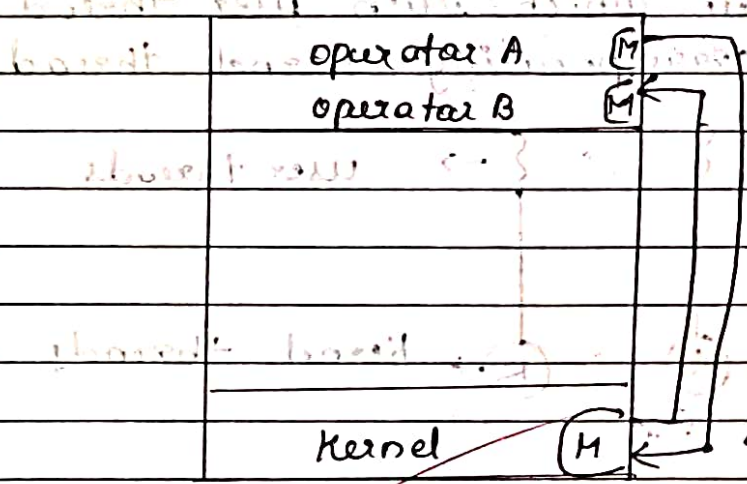 operatar A M
operatar B M
Kernel M